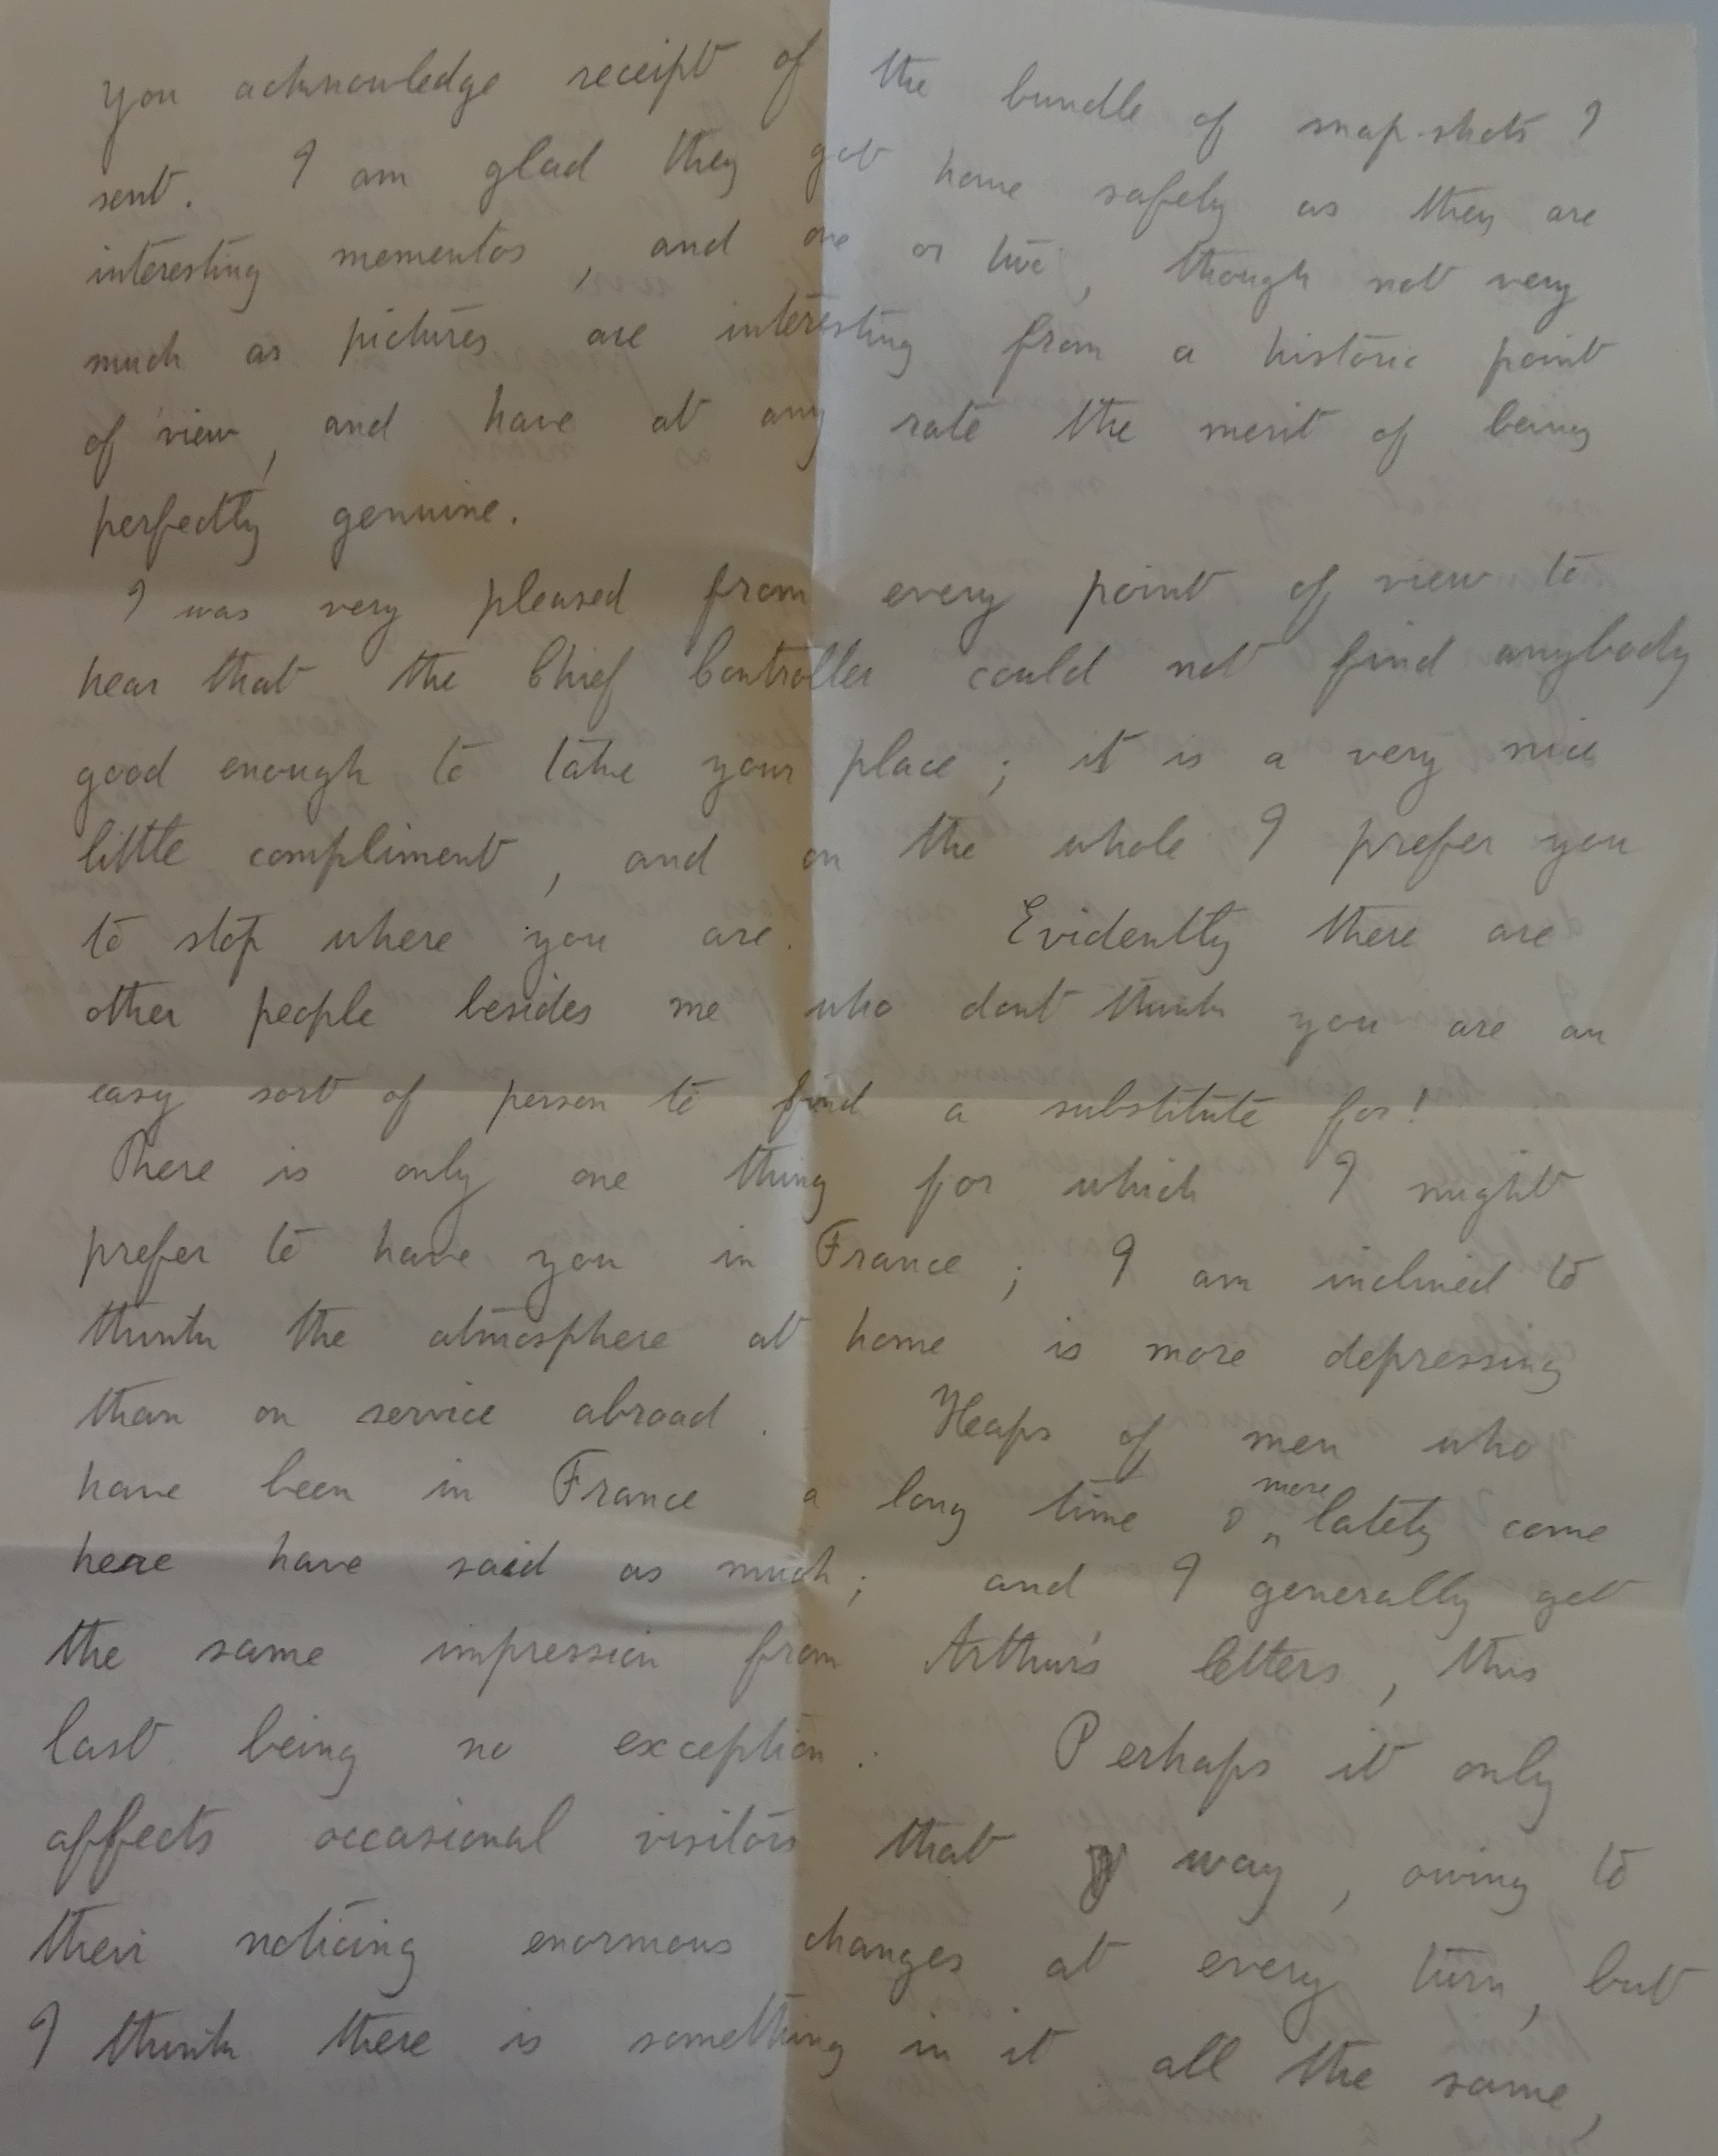 you acknowledge receipt of the bundle of snap-shots I
sent. I am glad they got home safely as they are
interesting mementos, and one or two, though not very
much as pictures are interesting from a historic point
of view, and have at any rate the merit of being
perfectly genuine.
I was very pleased from every point of view to
hear that the Chief Controller could not find anybody
good enough to take your place; it is a very nice
little compliment, and on the whole I prefer you
to stop where you are. Evidently there are
other people besides me who dont think you are an
easy sort of person to find a substitute for!
There is only one thing for which I might
prefer to have you in France; I am inclined to
think the atmosphere at home is more depressing
than on service abroad. Heaps of men who
have been in France a long time & more lately come
here have said as much; and I generally get
the same impression from Arthur's letters, this
last being no exception. Perhaps it only
affects occasional visitors that way, owing to
their noticing enormous changes at every turn, but
I think there is something in it all the same,